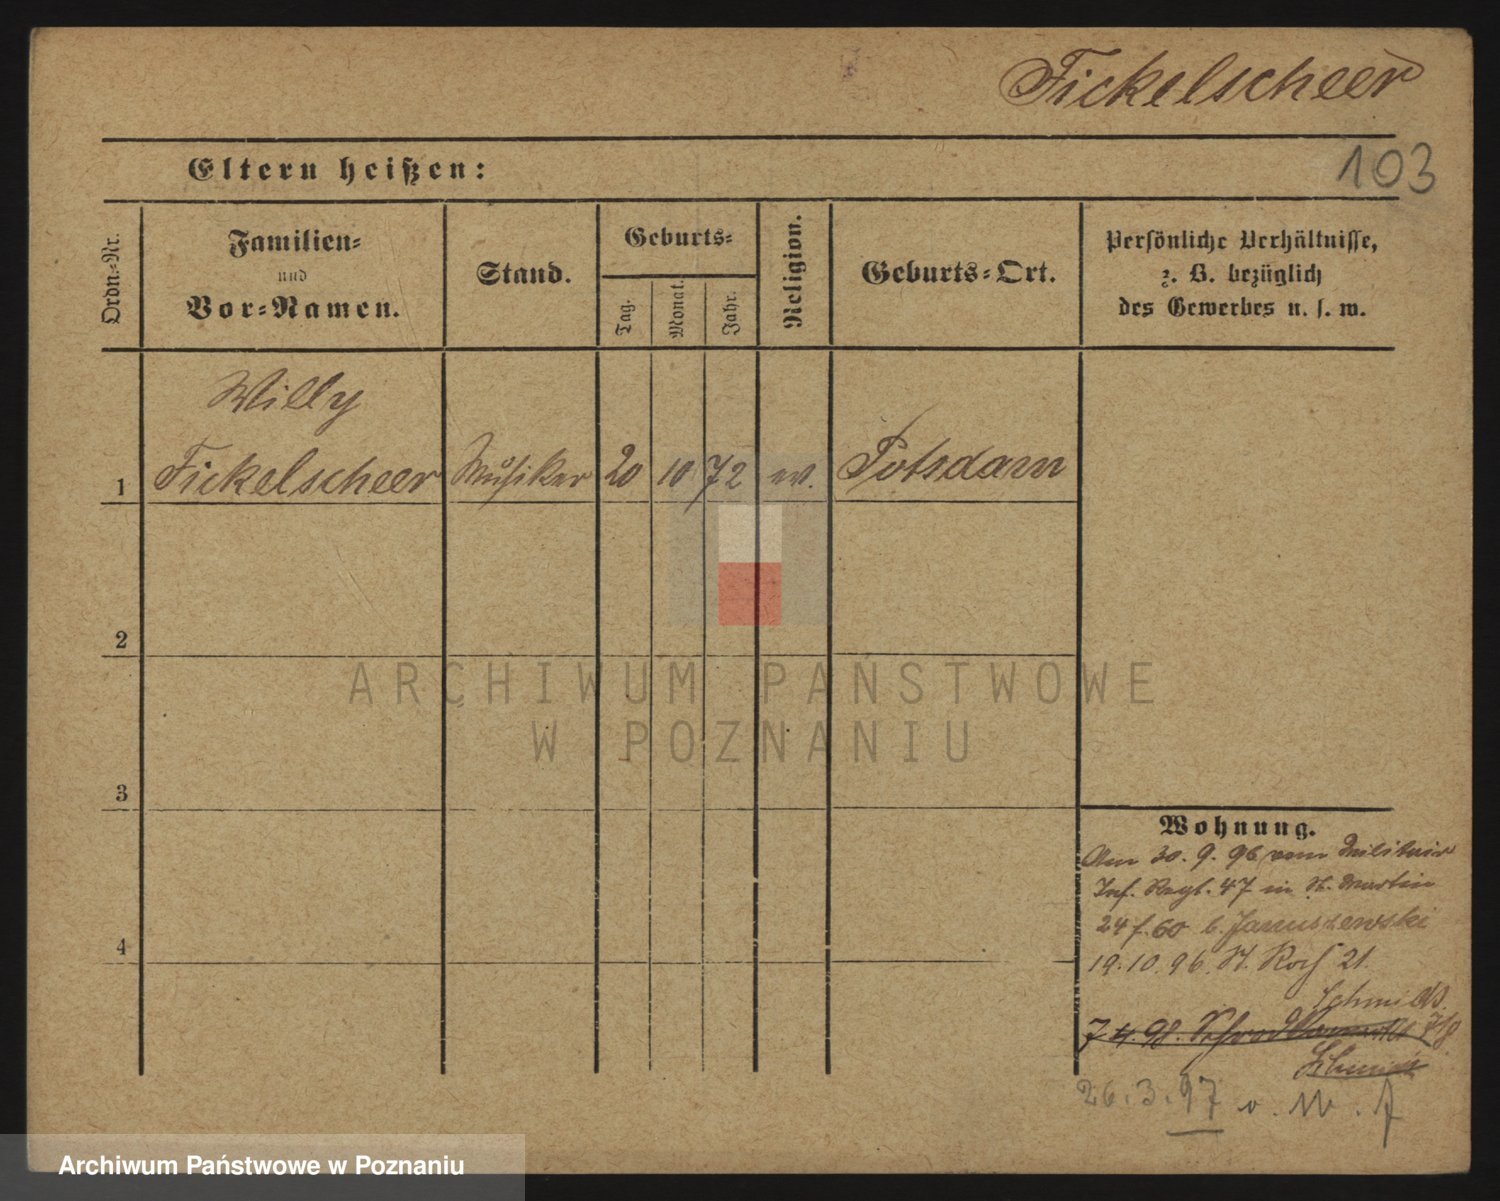 Fickelscheer
103
Eltern heißen:
Ordn=Nr.
Familien=
und
Vor=Namen.
Stand.
Geburts=
Tag.
Monat.
Jahr.
Religion.
Geburts=Ort.
Persönliche Verhältnisse,
z. B. bezüglich
des Gewerbes u. s. w.
Willy
1 Fickelscheer Musiker 20 10 72 ev. Potsdam
2
ARCHIWUM PAŃSTWOWE
W POZNANIU
3
Wohnung.
Am 30. 9. 96 vom Militair
Inf. Regt. 47 in St. Martin
24 f. 60 b. Januszewski
4
19. 10. 96. St. Roch 21
Schmidt.
7 4. 98.
26.3.97 v. W.
Archiwum Państwowe w Poznaniu